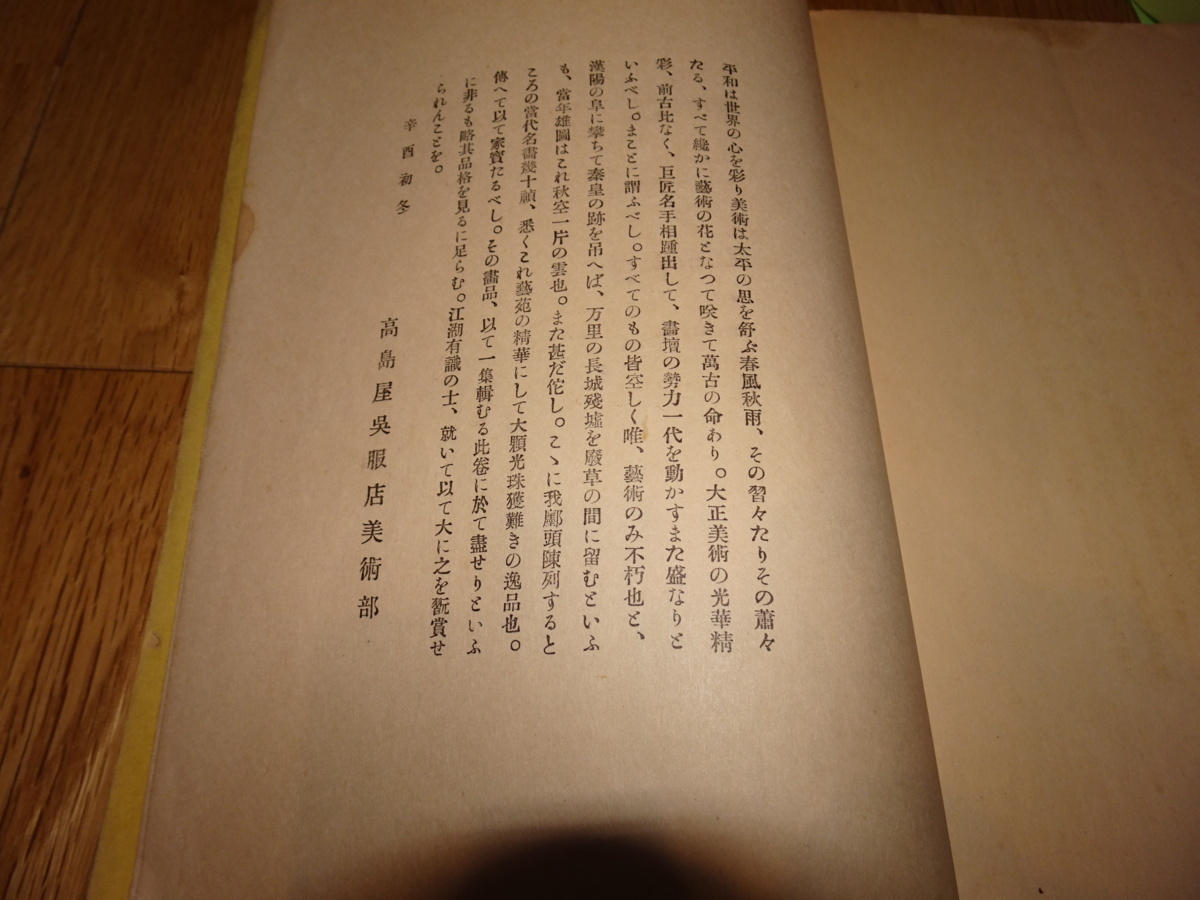 平和は世界の心を彩り美術は太平の思を舒ぶ春風秋雨、その習々たりその蕭々
たる、すべて纔かに藝術の花となつて咲きて萬古の命あり。大正美術の光華精
彩、前古比なく、巨匠名手相踵出して、畵壇の勢力一代を動かすまた盛なりと
いふべし。まことに謂ふべし。すべてのもの皆空しく唯、藝術のみ不朽也と、
漢陽の阜に攀ちて秦皇の跡を吊へば、万里の長城殘墟を廢草の間に留むといふ
も、當年雄圖はこれ秋空一片の雲也。また甚だ佗し。こゝに我廊頭陳列すると
ころの當代名畵幾十幀、悉くこれ藝苑の精華にして大顆光珠獲難きの逸品也。
傳へて以て家寳たるべし。その畵品、以て一集輯むる此卷に於て盡せりといふ
に非るも略其品格を見るに足らむ。江湖有識の士、就いて以て大に之を翫賞せ
られんことを。
辛酉初冬
高島屋吳服店美術部